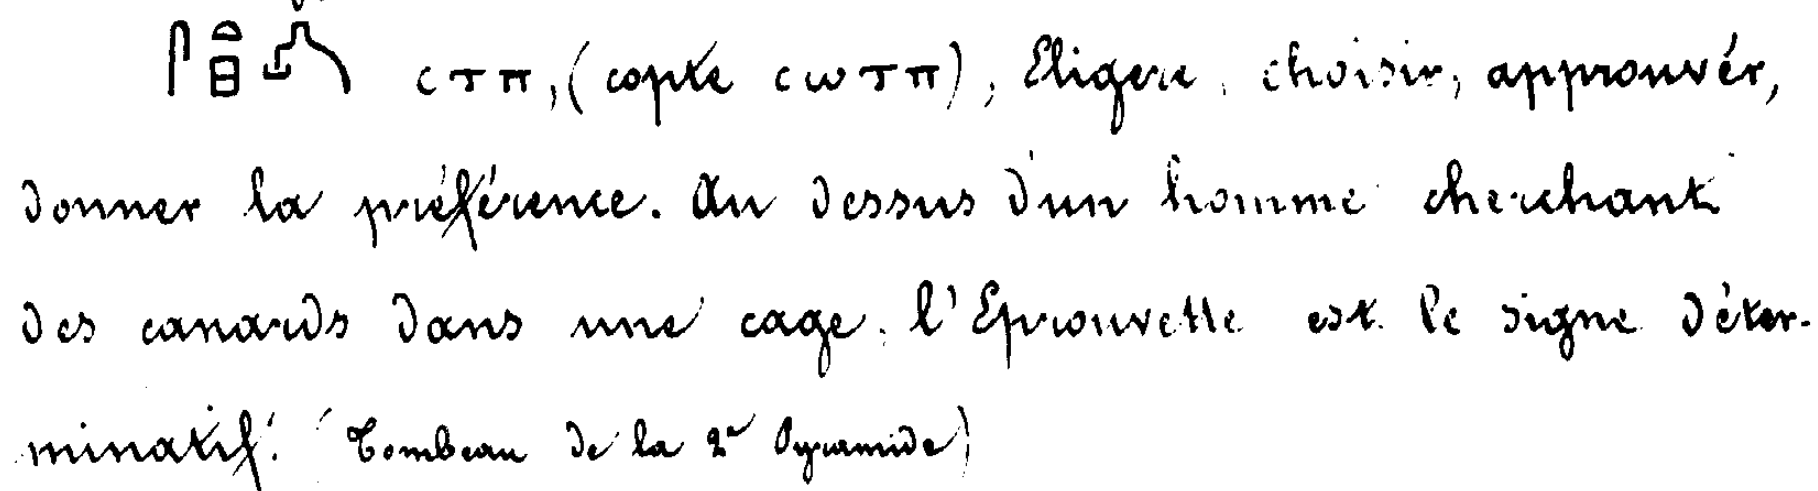 𓋴𓏏𓊪𓍉 ⲥⲧⲡ, (copte ⲥⲱⲧⲡ), Eligere, choisir, approuvér,
donner la préférence. Au dessus d'un homme cherchant
des canards dans une cage. l'Eprouvette est le signe déter-
minatif. (Tombeau de la 2e Pyramide)